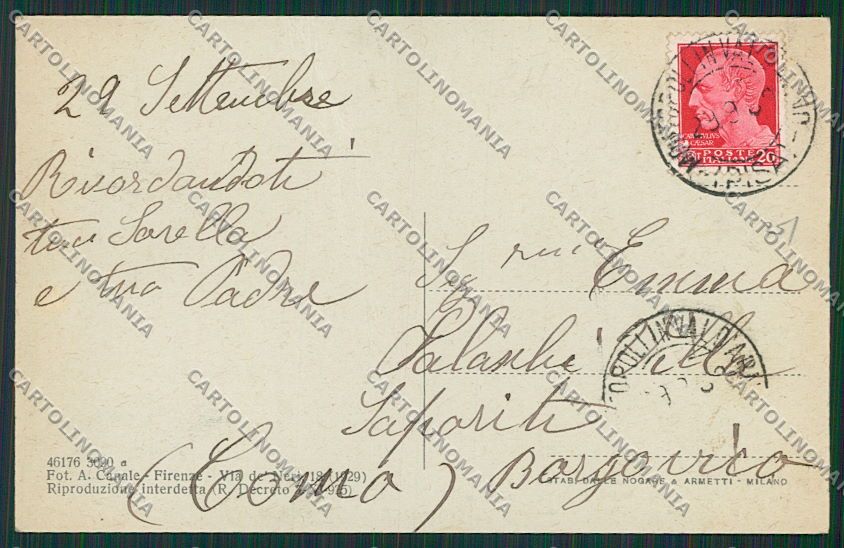 29 Settembre
Ricordandoti
tua Sorella
e tuo Padre
Emma
Villa
Saporiti
Borgovico
(Como)
46176 3090 a
Fot. A. Canale - Firenze - Via de' Neri 18 (1929)
Riproduzione interdetta (R. Decreto
STABI DALLE NOGARE & ARMETTI - MILANO
CAESAR
POSTE
ITALIANE
20
OPOLI IN VAL D'AR
CARTOLINOMANIA